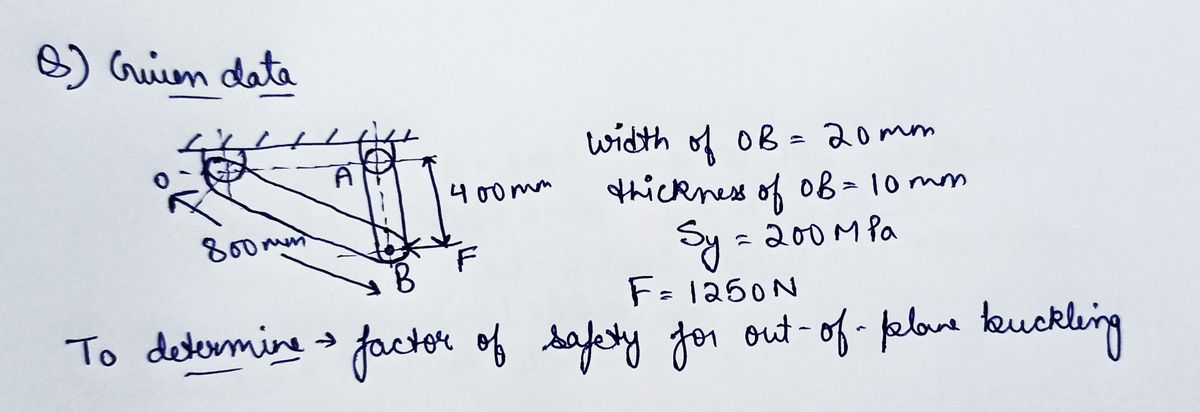 Q) Given data
width of OB = 20mm
O A 400mm thickness of OB = 10mm
800mm F Sy = 200 MPa
B F = 1250N
To determine → factor of safety for out-of-plane buckling